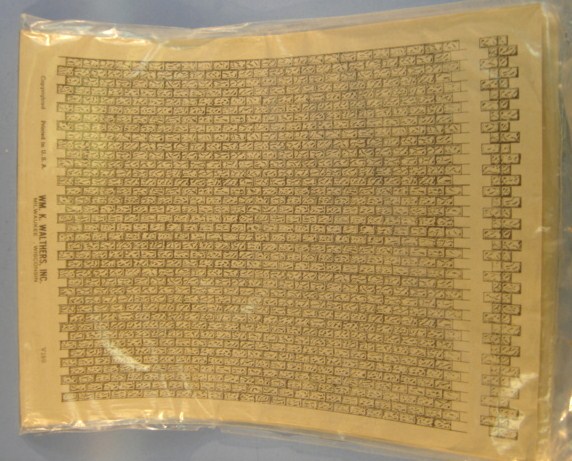 Copyrighted Printed in U.S.A.
WM. K. WALTHERS, INC.
MILWAUKEE WISCONSIN